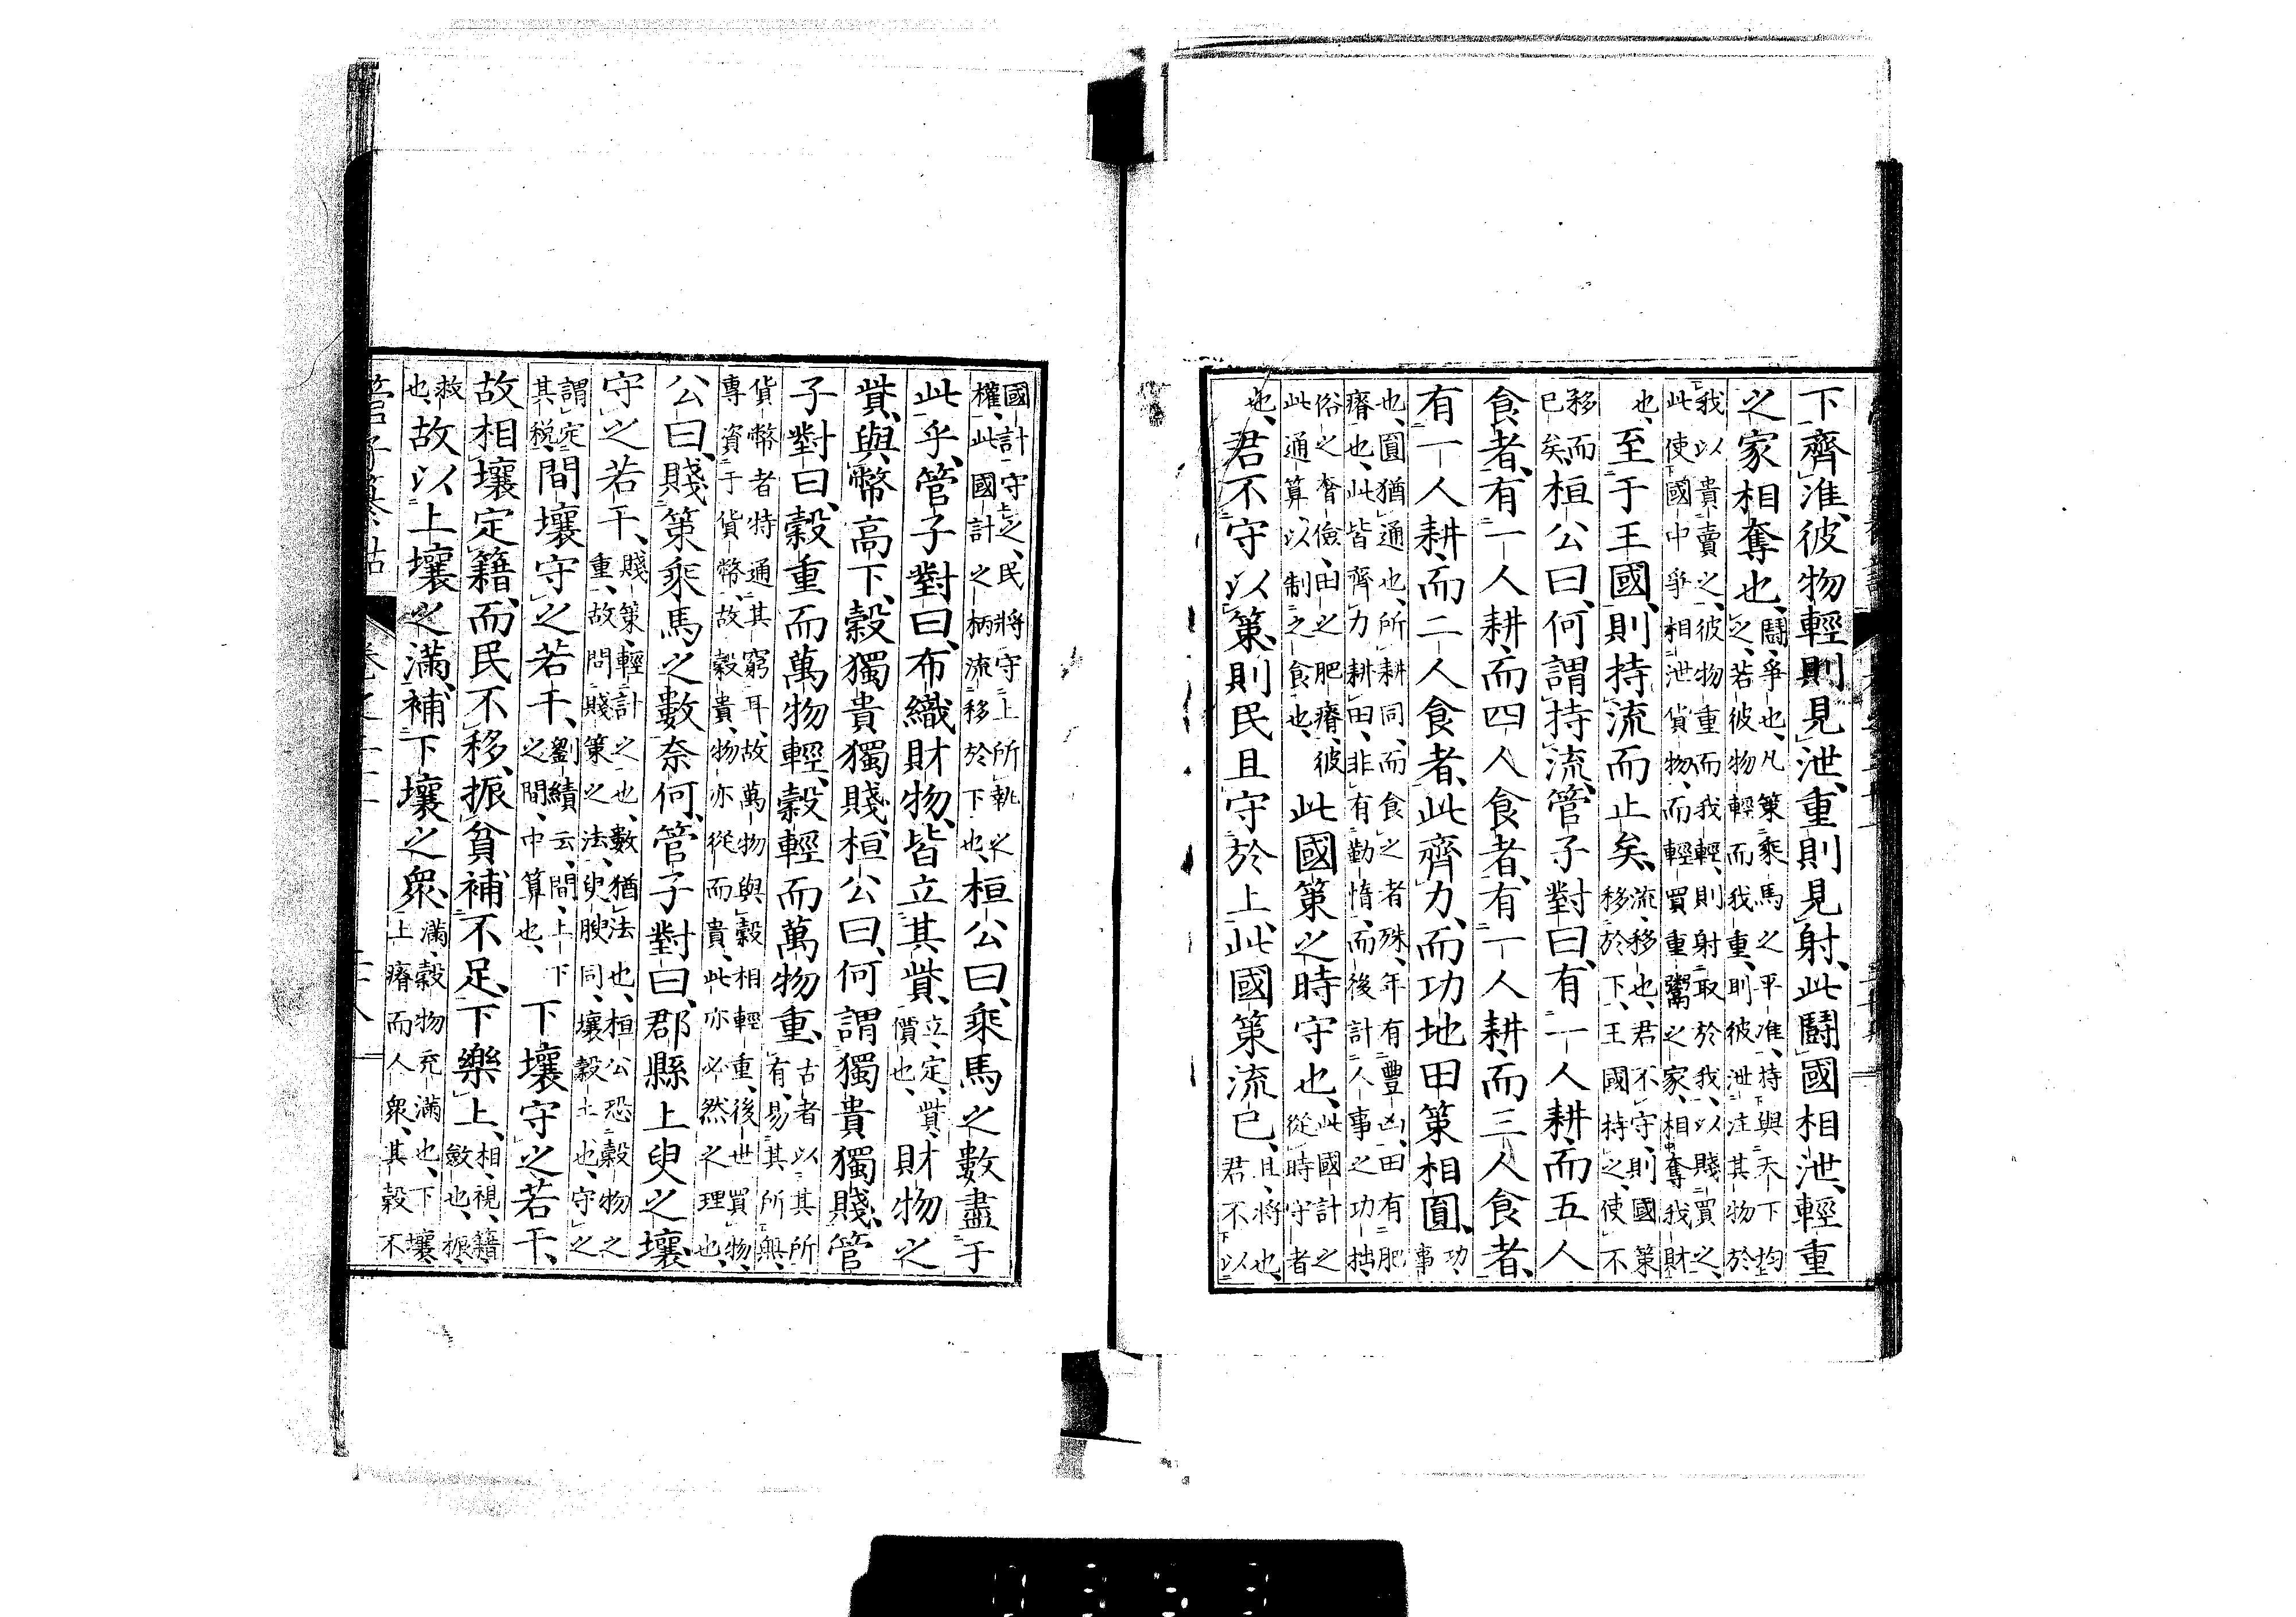 下齊准、彼物輕則見泄、重則見射、此鬭國相泄、輕重
之家相奪也、鬭、爭也、凡策乘馬之平准、持與天下均
之、若彼物輕而我重、則彼泄注其物於
我、以貴賣之、彼物重而我輕、則射取於我、以賤買之、
此使國中爭相泄貨物、而輕買重鬻之家、相奪我財
也、至于王國、則持流而止矣、流、移也、君不守、則國策
移於下、王國持之、使不
移而
已矣、桓公曰、何謂持流、管子對曰、有一人耕、而五人
食者、有一人耕、而四人食者、有一人耕、而三人食者、
有一人耕、而二人食者、此齊力、而功地田策相圓、功、
事
也、圓猶通也、所耕同、而食之者殊、年有豐凶、田有肥
瘠也、此皆齊力耕田、非有勤惰、而後計人事之功拙、
俗之奢儉、田之肥瘠、彼
此通算、以制之食也、此國策之時守也、此國計之
從時守者
也、君不守以策、則民且守於上、此國策流已、且、將也、
君不以
國計守之、民將守上所執之
權、此國計之柄流移於下也、桓公曰、乘馬之數盡于
此乎、管子對曰、布織財物、皆立其貲、立、定、貲、
價也、財物之
貲、與幣高下、穀獨貴獨賤、桓公曰、何謂獨貴獨賤、管
子對曰、穀重而萬物輕、穀輕而萬物重、古者以其所
有、易其所無、
貨幣者特通其窮耳、故萬物與穀相輕重、後世買物、
專資于貨幣、故穀貴、物亦從而貴、此亦必然之理也、
公曰、賤策乘馬之數奈何、管子對曰、郡縣上臾之壤
守之若干、賤策、輕計之也、數猶法也、桓公恐穀物之
重、故問賤策之法、臾腴同、壤穀土也、守之
謂定
其稅、間壤守之若干、劉績云、間、上下
之間、中算也、下壤守之若干、
故相壤定籍、而民不移、振貧補不足、下樂上、相、視、籍、
斂也、振、
救
也、故以上壤之滿、補下壤之衆、滿、穀物充滿也、下壤
上瘠而人衆、其穀不
管子纂詁